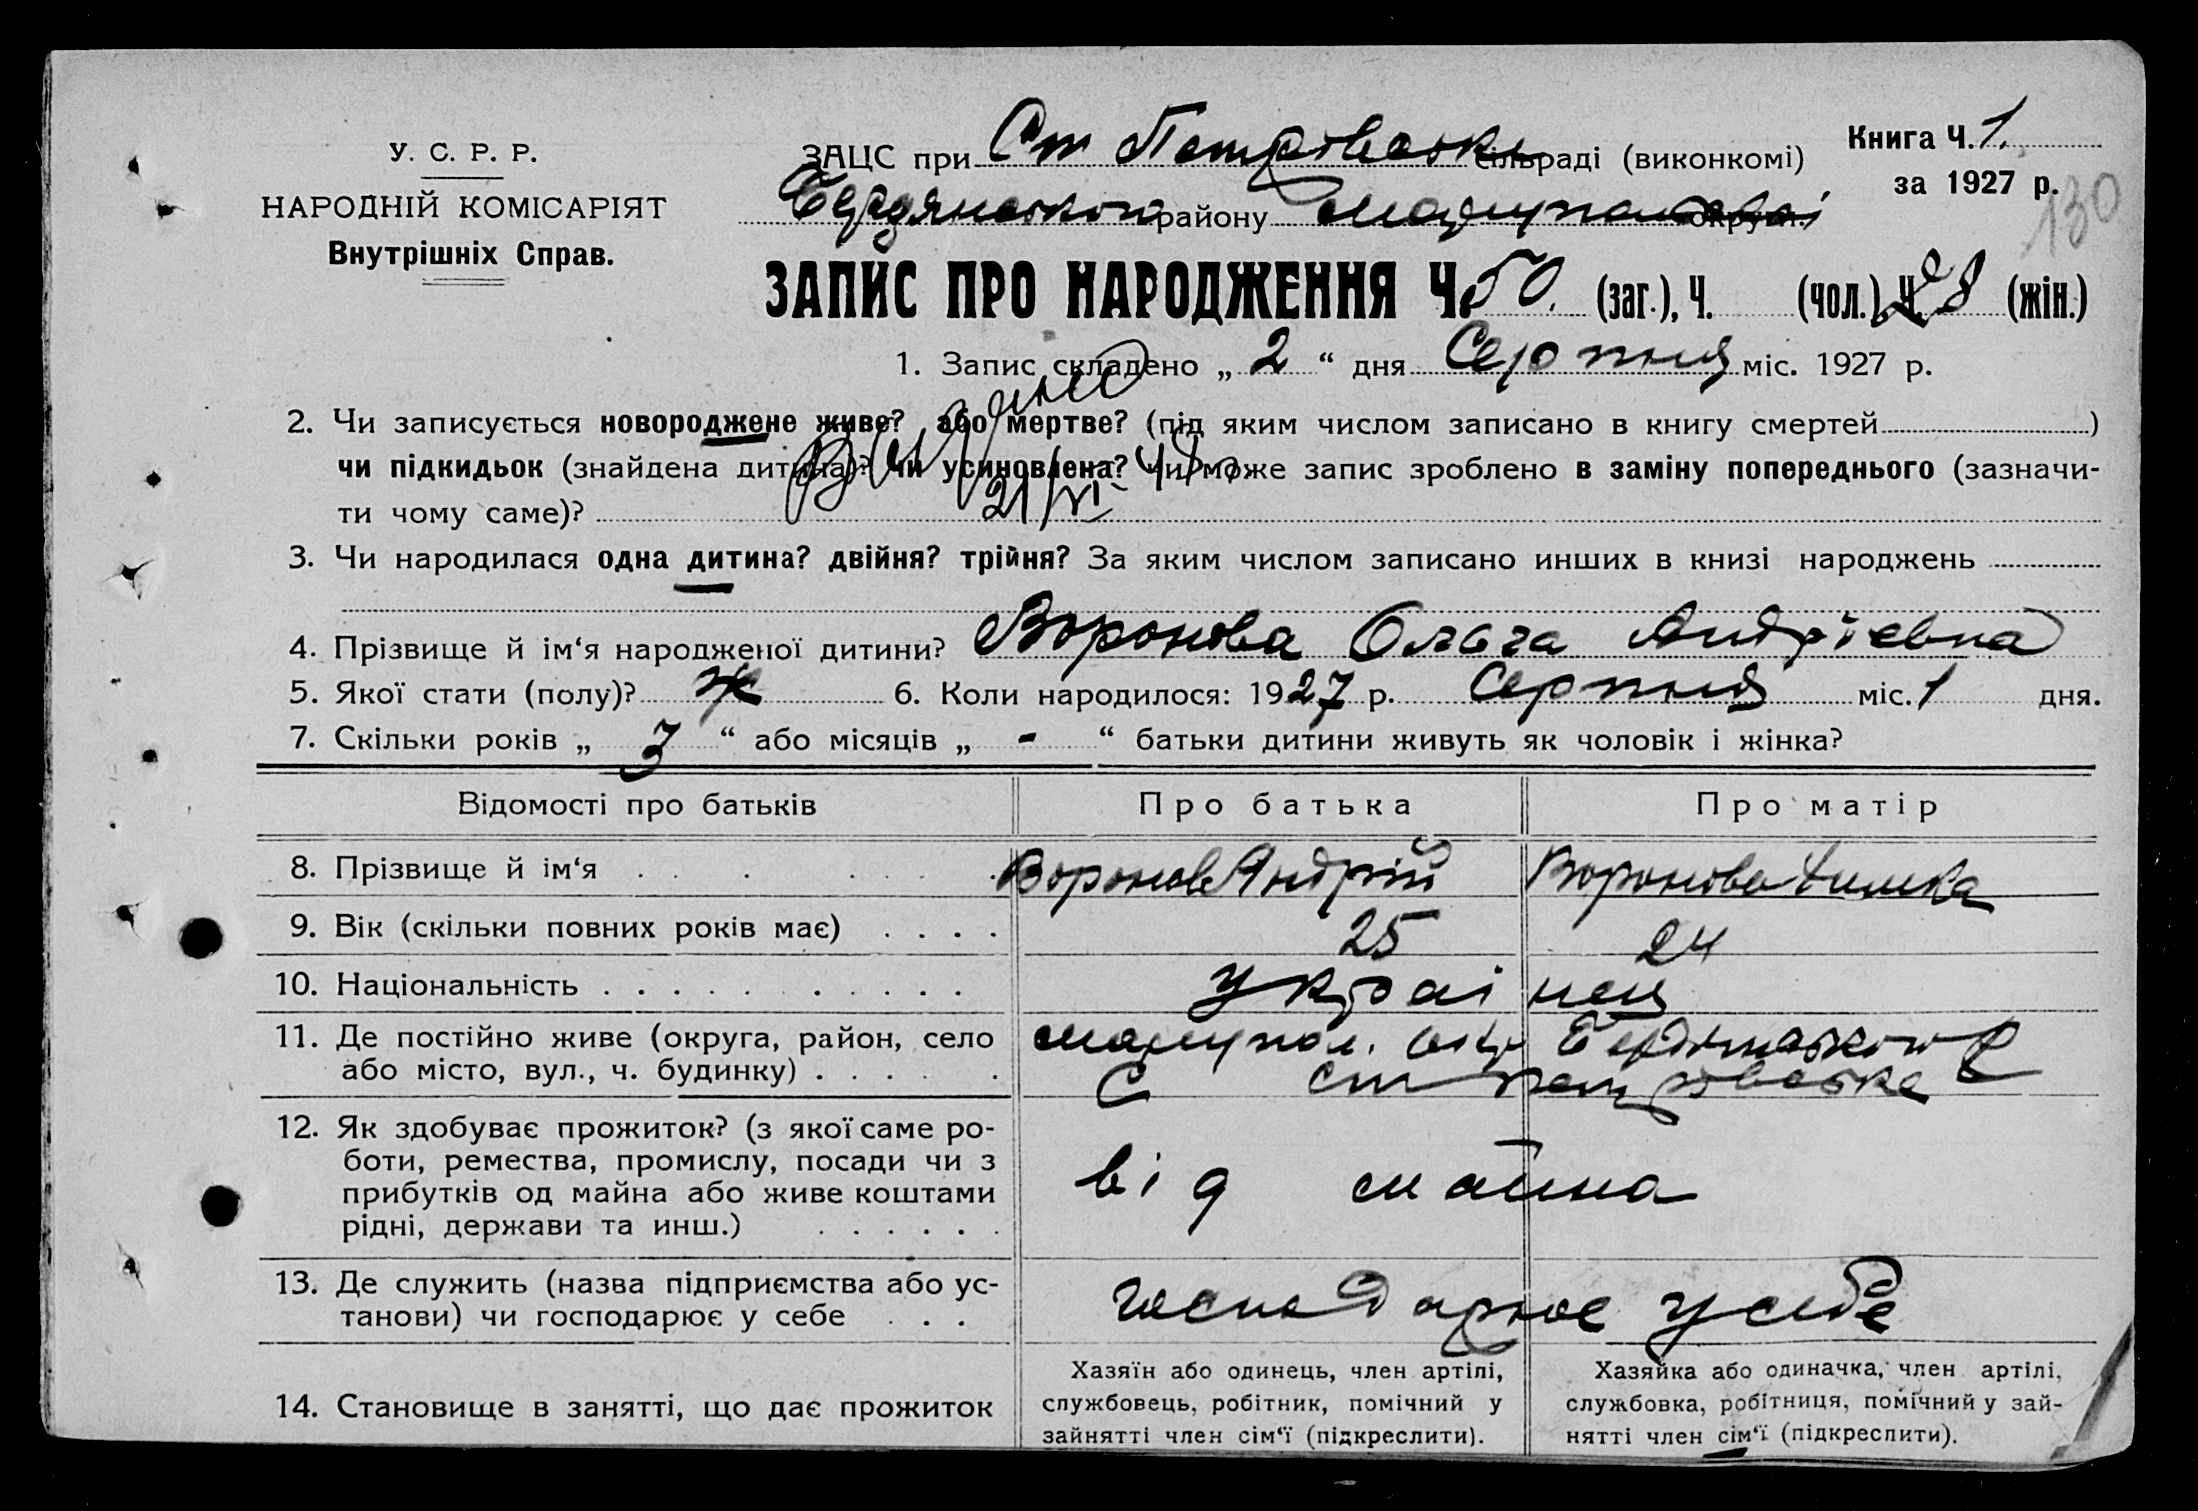 У. С. Р. Р.
НАРОДНІЙ КОМІСАРІЯТ
Внутрішніх Справ.
ЗАЦС при Ст Петровські сільраді (виконкомі)
Бердянського району Маріупольської округи
Книга Ч. 1.
за 1927 р.
130
ЗАПИС ПРО НАРОДЖЕННЯ Ч. 50. (заг.), Ч. (чол.), Ч. 28 (жін.)
1. Запис складено „ 2 “ дня Серпня міс. 1927 р.
2. Чи записується новороджене живе? або мертве? (під яким числом записано в книгу смертей )
чи підкидьок (знайдена дитина)? чи усиновлена? чи може запис зроблено в заміну попереднього (зазначи-
ти чому саме)?
Видано
21/VI-48
3. Чи народилася одна дитина? двійня? трійня? За яким числом записано инших в книзі народжень
4. Прізвище й ім‘я народженої дитини? Воронова Ольга Андріевна
5. Якої стати (полу)? Ж 6. Коли народилося: 1927 р. Серпня міс. 1 дня.
7. Скільки років „ 3 “ або місяців „ - “ батьки дитини живуть як чоловік і жінка?
Відомості про батьків Про батька Про матір
8. Прізвище й ім‘я Воронов Андрій Воронова
9. Вік (скільки повних років має) 25 24
10. Національність українец
11. Де постійно живе (округа, район, село Маріупол. окр Бердянського р
або місто, вул., ч. будинку) С Ст Петровське
12. Як здобуває прожиток? (з якої саме ро-
боти, ремества, промислу, посади чи з
прибутків од майна або живе коштами
рідні, держави та инш.) від майна
13. Де служить (назва підприємства або ус-
танови) чи господарює у себе господарює у себе
14. Становище в занятті, що дає прожиток
Хазяїн або одинець, член артілі,
службовець, робітник, помічний у
зайнятті член сім‘ї (підкреслити).
Хазяйка або одиначка, член артілі,
службовка, робітниця, помічний у зай-
нятті член сім‘ї (підкреслити).